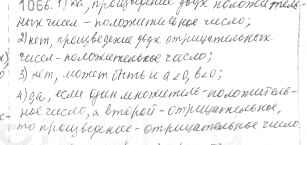 1066. 1) да, произведение двух положитель-
ных чисел - положительное число;
2) нет, произведение двух отрицательных
чисел - положительное число;
3) нет, может быть и a<0, b<0;
4) да, если один множитель - положитель-
ное число, а второй - отрицательное,
то произведение - отрицательное число.